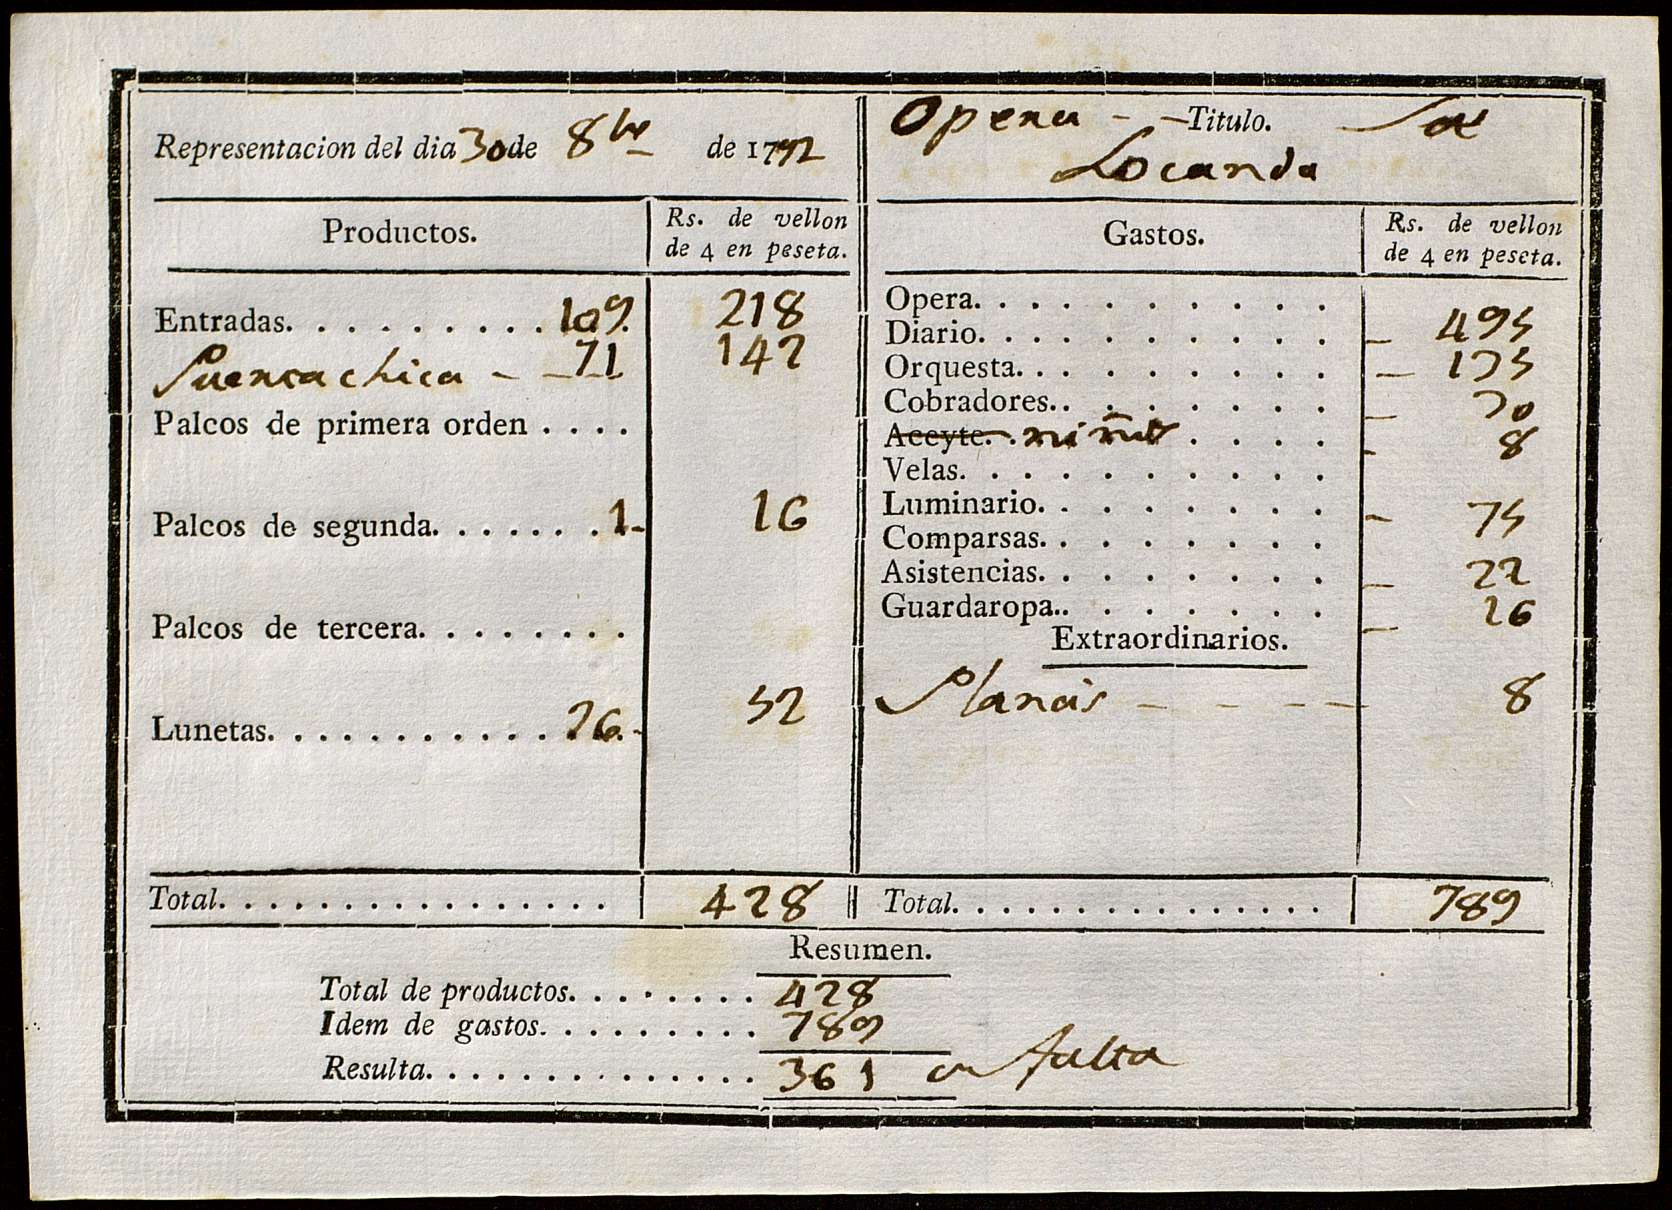 Representacion del dia 30 de 8bre de 1792
Opera - - Titulo. La
Locanda
Productos.
Rs. de vellon
de 4 en peseta.
Gastos.
Rs. de vellon
de 4 en peseta.
Entradas. . . . . . . . . . 109. 218
Puerta chica - - 71 142
Palcos de primera orden . . . .
Palcos de segunda. . . . . . . 1- 16
Palcos de tercera. . . . . . . .
Lunetas. . . . . . . . . . . . 26. - 52
Opera. . . . . . . . . .
Diario. . . . . . . . . . - 495
Orquesta. . . . . . . . . - 135
Cobradores.. . . . . . . - 30
Aceyte. . niños . . . . - 8
Velas. . . . . . . . . .
Luminario. . . . . . . . - 75
Comparsas. . . . . . . .
Asistencias. . . . . . . . - 22
Guardaropa.. . . . . . . - 16
Extraordinarios.
- - - - 8
Total. . . . . . . . . . . . . . . . 428
Total. . . . . . . . . . . . . . . 789
Resumen.
Total de productos. . . . . . . . 428
Idem de gastos. . . . . . . . . 789
Resulta. . . . . . . . . . . . . . 361 en falta